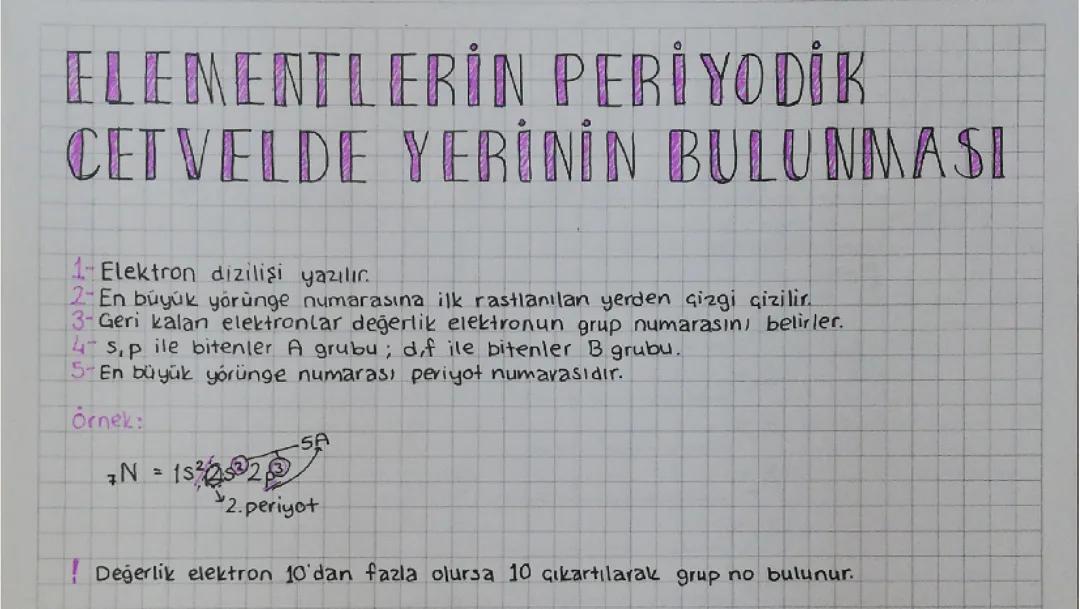 ELEMENTLERİN PERİYODİK
CETVELDE YERİNİN BULUNMASI
1- Elektron dizilişi yazılır.
2- En büyük yörünge numarasına ilk rastlanılan yerden çizgi çizilir.
3- Geri kalan elektronlar değerlik elektronun grup numarasını belirler.
4- s,p ile bitenler A grubu; d,f ile bitenler B grubu.
5- En büyük yörünge numarası periyot numarasıdır.
Örnek:
5A
₇N = 1s² 2s² 2p³
2. periyot
! Değerlik elektron 10'dan fazla olursa 10 çıkartılarak grup no bulunur.